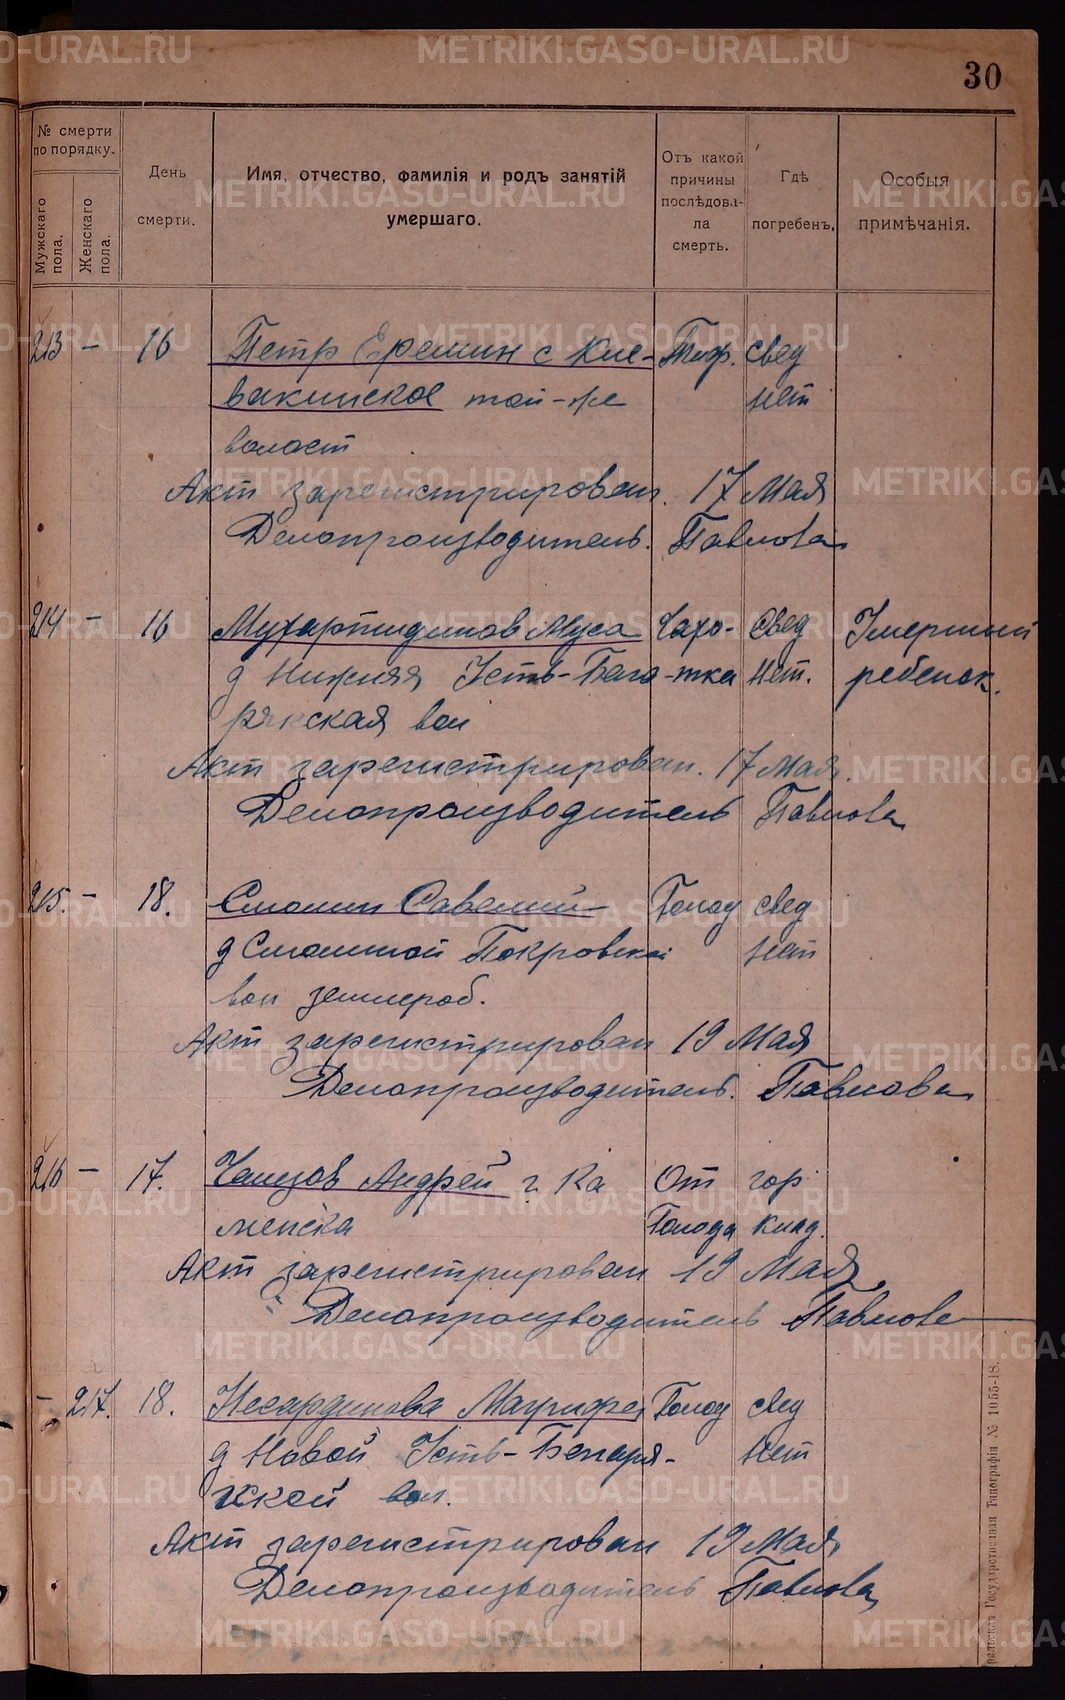 30
№ смерти по порядку.
Мужскаго пола.
Женскаго пола.
День смерти.
Имя, отчество, фамилія и родъ занятій умершаго.
Отъ какой причины послѣдовала смерть.
Гдѣ погребенъ.
Особыя примѣчанія.
213 — 16 Петр Еремин с Кле- Тиф. свед
вакинское той-же нет
волост
Акт зарегистрирован. 17 Мая
Делопроизводитель. Павлова
214 — 16 Мухартидинов Муса Чахо- свед Умерший
д Нижняя Усть-Бага -тка нет. ребенок.
рякская вол
Акт зарегистрирован. 17 мая.
Делопроизводитель Павлова
215. — 18. Смолин Савелий Голод свед
д Смолиной Покровской нет
вол землероб.
Акт зарегистрирован 19 Мая
Делопроизводитель. Павлова
216 — 17. Андрей г. Ка От гор
менска Голода клад.
Акт зарегистрирован 19 Мая
Делопроизводитель Павлова
— 217. 18. Голод свед
д Новой Усть-Багаря- нет
кской вол.
Акт зарегистрирован 19 Мая
Делопроизводитель Павлова
Государственная Типографія № 1055-18.
METRIKI.GASO-URAL.RU